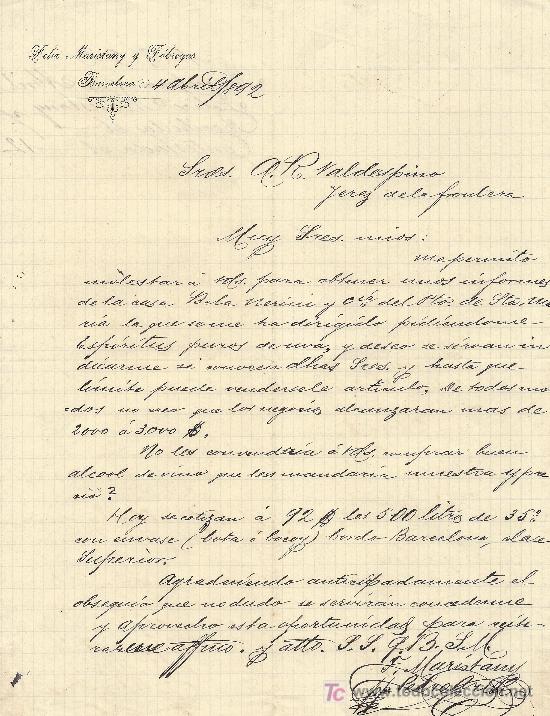 Felix Maristany y Fábregas
Barcelona 4 abril 1892
Sres. A. R. Valdespino
Jerez de la frontera
Muy Sres. mios:
me permito
molestar á Vds. para obtener unos informes
de la casa y Cia. del Pto. de Sta. Ma
ria la que se me ha dirigido pidiendome
espíritus puros de uva, y deseo se sirvan in
dicarme si conocen dhos Sres. y hasta que
límite puede vendersele articulo. De todos mo
dos no veo que los negocios alcanzaran mas de
2000 á 3000 $.
No les convendria á Vds. comprar buen
alcool de vino que les mandaria muestra y pre
cio?
Hoy se cotizan á 92 $ los 500 litros de 35º
con envase (bota ó bocoy) bordo Barcelona, clase
Superior.
Agradeciendo anticipadamente el
obsequio que no dudo se servirán concederme
y aprovecho esta oportunidad para reite
rarme affmo. y atto. S. S. Q. B. S. M.
F. Maristany
TC todocoleccion.net